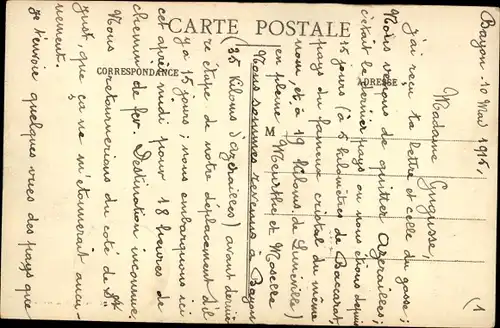 CARTE POSTALE
CORRESPONDANCE
ADRESSE
M
(1
Bayon 10 Mai 1915.
Madame Gugusse,
J'ai reçu ta lettre et celle du gosse;
Nous venons de quitter Azerailles;
c'était le dernier pays où nous étions depuis
15 jours (à 5 kilomètres de Baccarat,
pays du fameux cristal du même
nom, et à 19 kilom. de Lunéville)
en pleine Meurthe et Moselle
Nous sommes revenus à Bayon,
(35 kilom d'Azerailles) avant derniè
re étape de notre déplacement d'il
y a 15 jours; nous embarquons ici
cet après midi pour 18 heures de
chemin de fer. Destination inconnue.
Nous retournerions du côté de
just, que ça ne m'étonnerait aucu-
nement.
je t'envoie quelques vues des pays que